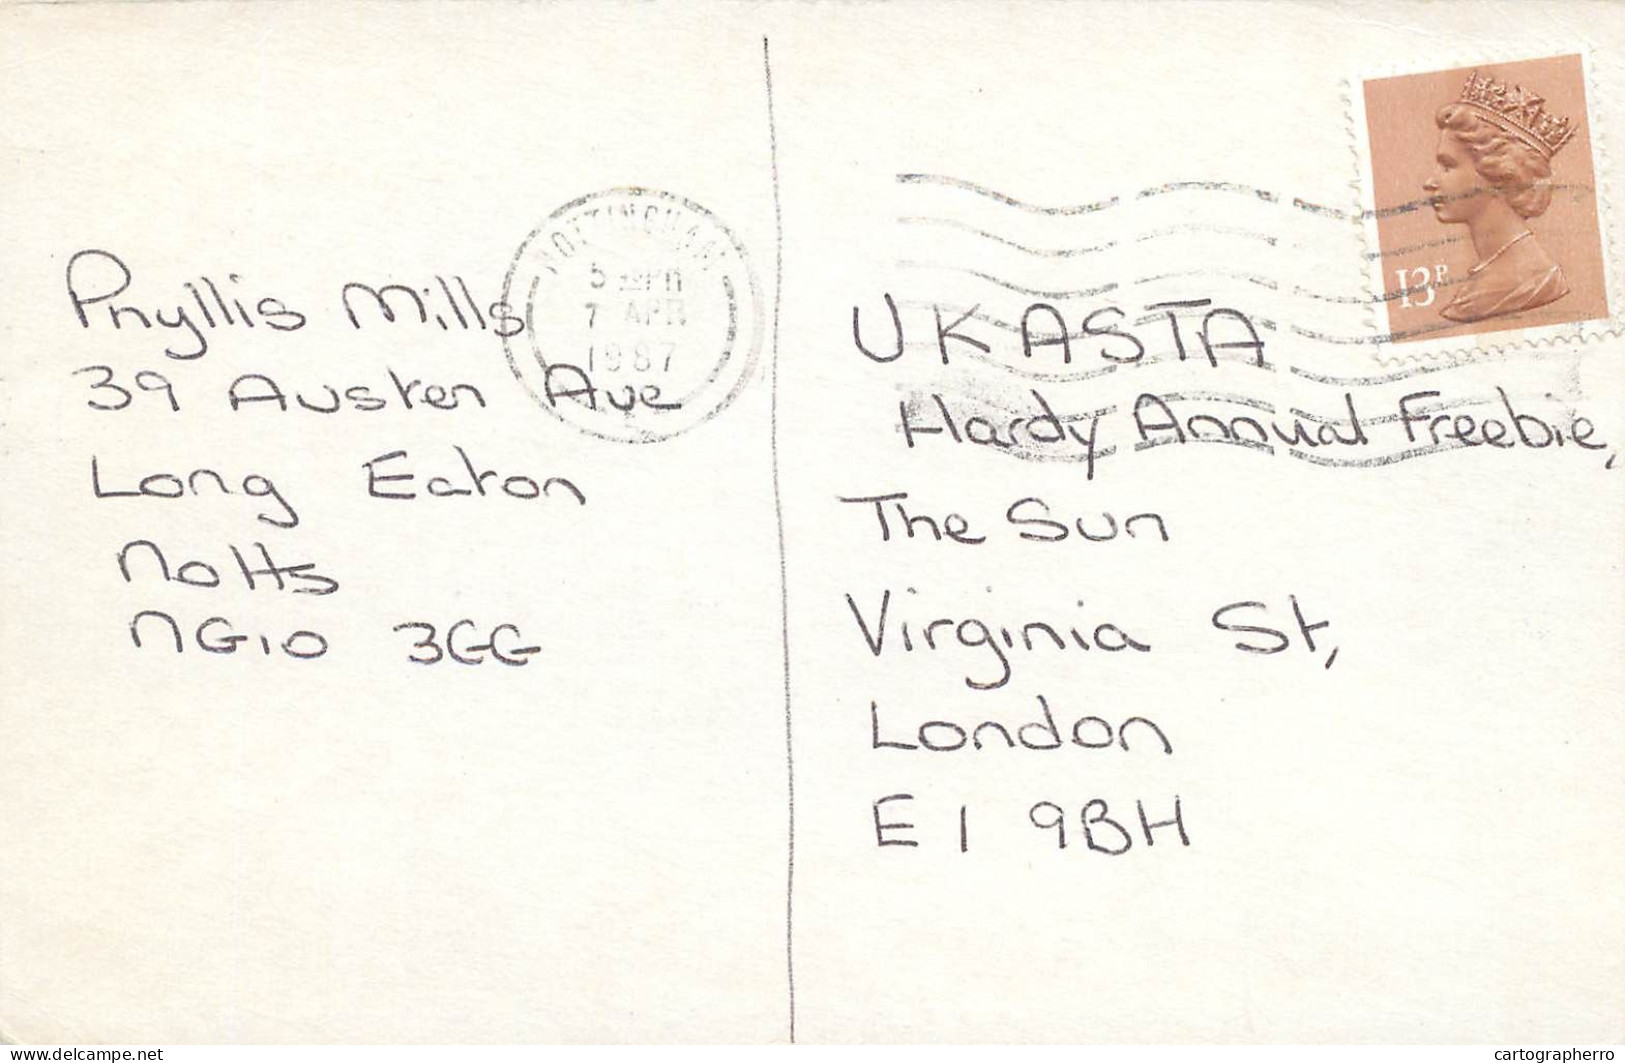 Phyllis Mills
39 Austen Ave
Long Eaton
Notts
NG10 3GG
NOTTINGHAM
7 APR
1987
13P
UKASTA
Hardy Annual Freebie,
The Sun
Virginia St,
London
E1 9BH
www.delcampe.net
cartographerro